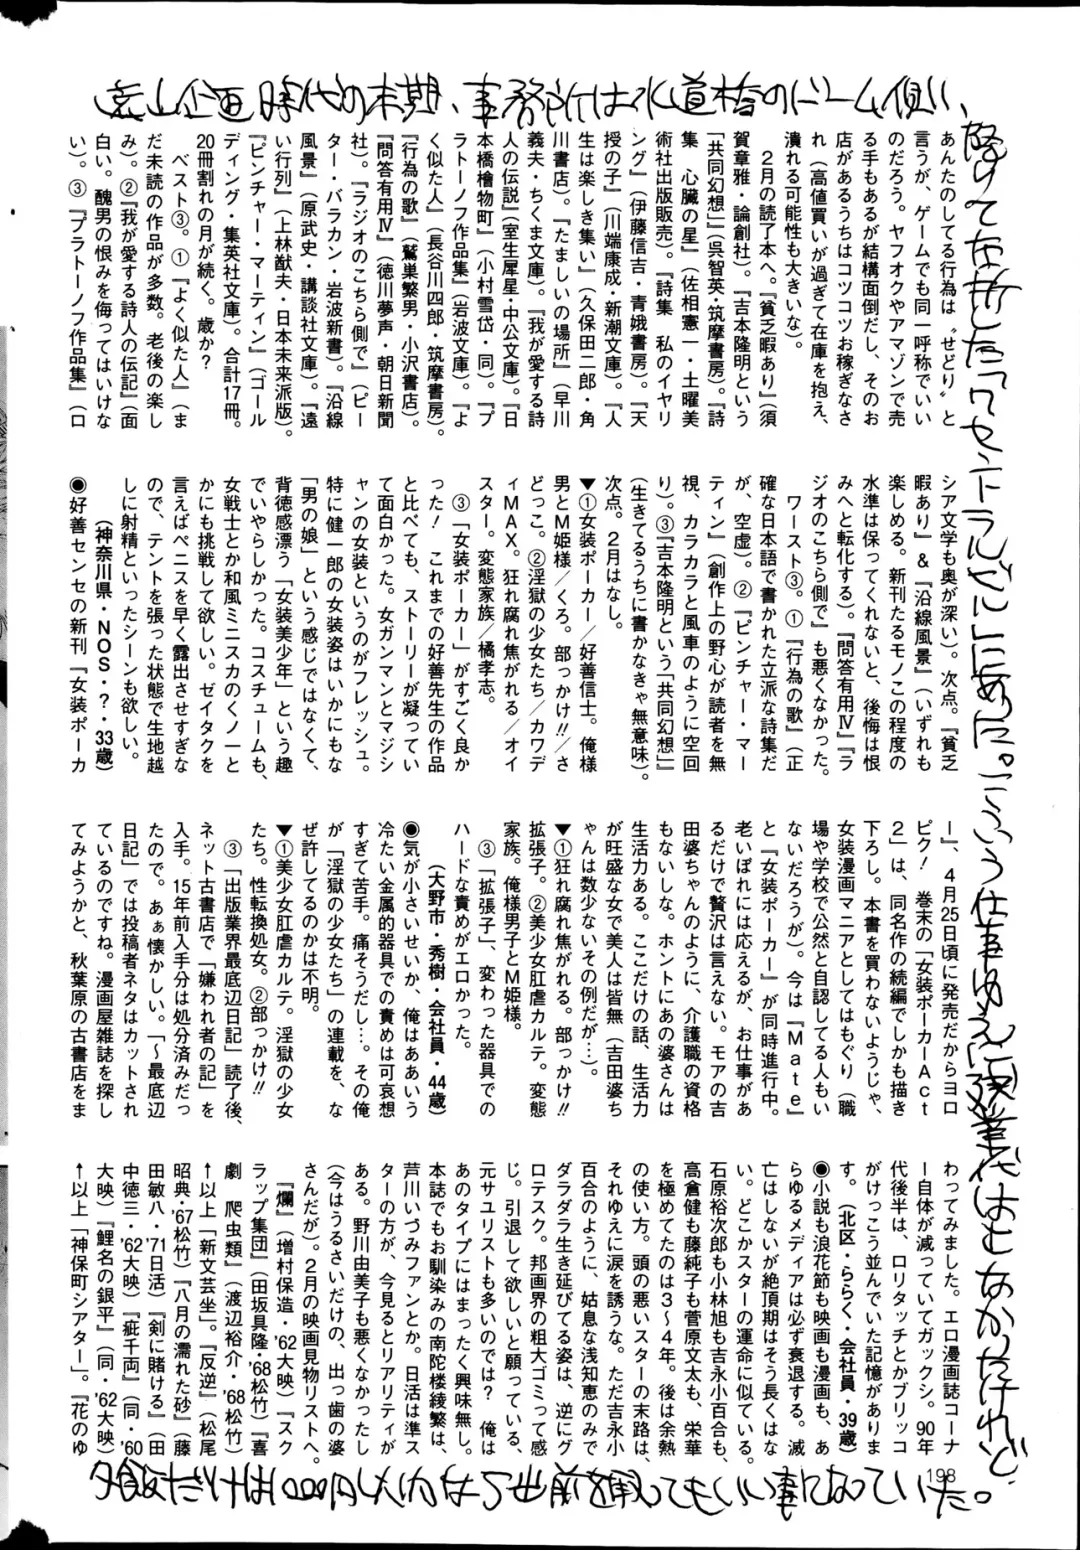 遠山企画時代の末期、事務所は水道橋のドーム側い、
あんたのしてる行為は〝せどり〟と
言うが、ゲームでも同一呼称でいい
のだろう。ヤフオクやアマゾンで売
る手もあるが結構面倒だし、そのお
店があるうちはコツコツお稼ぎなさ
れ（高値買いが過ぎて在庫を抱え、
潰れる可能性も大きいな）。
２月の読了本へ。『貧乏暇あり』（須
賀章雅・論創社）。『吉本隆明という
「共同幻想」』（呉智英・筑摩書房）。『詩
集　心臓の星』（佐相憲一・土曜美
術社出版販売）。『詩集　私のイヤリ
ング』（伊藤信吉・青娥書房）。『天
授の子』（川端康成・新潮文庫）。『人
生は楽しき集い』（久保田二郎・角
川書店）。『たましいの場所』（早川
義夫・ちくま文庫）。『我が愛する詩
人の伝説』（室生犀星・中公文庫）。『日
本橋檜物町』（小村雪岱・同）。『プ
ラトーノフ作品集』（岩波文庫）。『よ
く似た人』（長谷川四郎・筑摩書房）。
『行為の歌』（鷲巣繁男・小沢書店）。
『問答有用Ⅳ』（徳川夢声・朝日新聞
社）。『ラジオのこちら側で』（ピー
ター・バラカン・岩波新書）。『沿線
風景』（原武史・講談社文庫）。『遠
い行列』（上林猷夫・日本未来派版）。
『ピンチャー・マーティン』（ゴール
ディング・集英社文庫）。合計17冊。
20冊割れの月が続く。歳か？
ベスト③。①『よく似た人』（ま
だ未読の作品が多数。老後の楽し
み）。②『我が愛する詩人の伝記』（面
白い。醜男の恨みを侮ってはいけな
い）。③『プラトーノフ作品集』（ロ
シア文学も奥が深い）。次点。『貧乏
暇あり』＆『沿線風景』（いずれも
楽しめる。新刊たるモノこの程度の
水準は保ってくれないと、後悔は恨
みへと転化する）。『問答有用Ⅳ』『ラ
ジオのこちら側で』も悪くなかった。
ワースト③。①『行為の歌』（正
確な日本語で書かれた立派な詩集だ
が、空虚）。②『ピンチャー・マー
ティン』（創作上の野心が読者を無
視、カラカラと風車のように空回
り）。③『吉本隆明という「共同幻想」』
（生きてるうちに書かなきゃ無意味）。
次点。２月はなし。
▼①女装ポーカー／好善信士。俺様
男とＭ姫様／くろ。部っかけ!!／さ
どっこ。②淫獄の少女たち／カワデ
ィＭＡＸ。狂れ腐れ焦がれる／オイ
スター。変態家族／橘孝志。
③「女装ポーカー」がすごく良か
った！　これまでの好善先生の作品
と比べても、ストーリーが凝ってい
て面白かった。女ガンマンとマジシ
ャンの女装というのがフレッシュ。
（神奈川県・ＮＯＳ・？・33歳）
◉好善センセの新刊『女装ポーカ
ー』、４月25日頃に発売だからヨロ
ピク！　巻末の「女装ポーカーＡｃｔ
２」は、同名作の続編でしかも描き
下ろし。本書を買わないようじゃ、
女装漫画マニアとしてはもぐり（職
場や学校で公然と自認してる人もい
ないだろうが）。今は『Ｍａｔｅ』
と『女装ポーカー』が同時進行中。
老いぼれには応えるが、お仕事があ
るだけで贅沢は言えない。モアの吉
田婆ちゃんのように、介護職の資格
もないしな。ホントにあの婆さんは
生活力ある。ここだけの話、生活力
が旺盛な女で美人は皆無（吉田婆ち
ゃんは数少ないその例だが…）。
▼①狂れ腐れ焦がれる。部っかけ!!
拡張子。②美少女肛虐カルテ。変態
家族。俺様男子とＭ姫様。
③「拡張子」、変わった器具での
ハードな責めがエロかった。
（大野市・秀樹・会社員・44歳）
◉気が小さいせいか、俺はああいう
冷たい金属的器具での責めは可哀想
すぎて苦手。痛そうだし…。その俺
が「淫獄の少女たち」の連載を、な
ぜ許してるのかは不明。
▼①美少女肛虐カルテ。淫獄の少女
たち。性転換処女。②部っかけ!!
③「出版業界最底辺日記」読了後、
ネット古書店で「嫌われ者の記」を
入手。15年前入手分は処分済みだっ
たので。あぁ懐かしい。「～最底辺
日記」では投稿者ネタはカットされ
ているのですね。漫画屋雑誌を探し
てみようかと、秋葉原の古書店をま
わってみました。エロ漫画誌コーナ
ー自体が減っていてガックシ。90年
代後半は、ロリタッチとかブリッコ
がけっこう並んでいた記憶がありま
す。（北区・ららく・会社員・39歳）
◉小説も浪花節も映画も漫画も、あ
らゆるメディアは必ず衰退する。滅
亡はしないが絶頂期はそう長くはな
い。どこかスターの運命に似ている。
石原裕次郎も小林旭も吉永小百合も、
高倉健も藤純子も菅原文太も、栄華
を極めてたのは３～４年。後は余熱
の使い方。頭の悪いスターの末路は、
それゆえに涙を誘うな。ただ吉永小
百合のように、姑息な浅知恵のみで
ダラダラ生き延びてる姿は、逆にグ
ロテスク。邦画界の粗大ゴミって感
じ。引退して欲しいと願っている、
元サユリストも多いのでは？　俺は
あのタイプにはまったく興味無し。
本誌でもお馴染みの南陀楼綾繁は、
芦川いづみファンとか。日活は準ス
ターの方が、今見るとリアリティが
ある。野川由美子も悪くなかったし
（今はうるさいだけの、出っ歯の婆
さんだが）。２月の映画見物リストへ。
『爛』（増村保造・'62大映）『スク
ラップ集団』（田坂具隆・'68松竹）『喜
劇　爬虫類』（渡辺祐介・'68松竹）
↑以上「新文芸坐」。『反逆』（松尾
昭典・'67松竹）『八月の濡れた砂』（藤
田敏八・'71日活）『剣に賭ける』（田
中徳三・'62大映）『疵千両』（同・'60
大映）『鯉名の銀平』（同・'62大映）
↑以上「神保町シアター」。『花のゆ
198
夕飯だけは1000円以内なら出前を取ってもいい事になっていた。